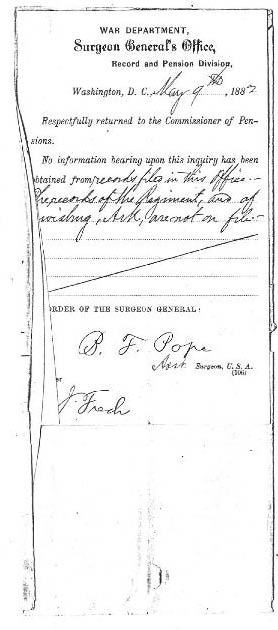 WAR DEPARTMENT,
Surgeon General's Office,
Record and Pension Division,
Washington, D. C. May 9th, 1882
Respectfully returned to the Commissioner of Pen-
sions.
No information bearing upon this inquiry has been
btained from records filed in this Office.-
he records of the Regiment, and of
wisburg, Ark, are not on file-
RDER OF THE SURGEON GENERAL:
B. F. Pope
Asst Surgeon, U. S. A.
(206)
J. Frech